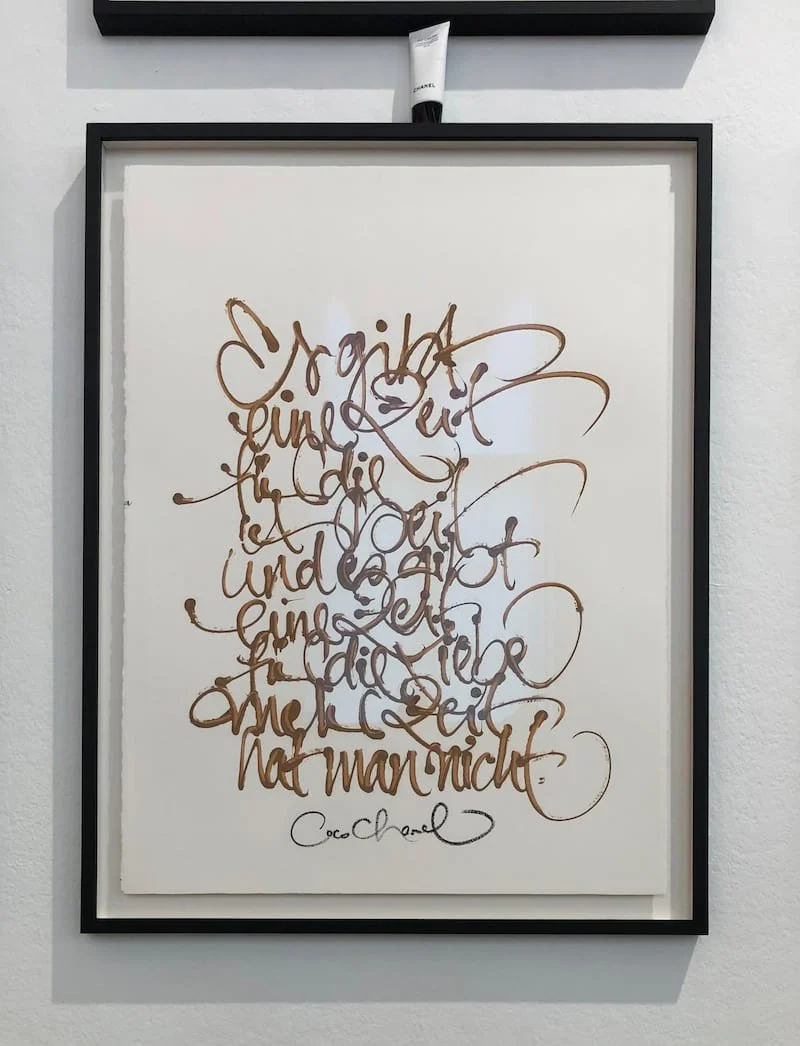 CHANEL
Es gibt
eine Zeit
für die
Arbeit
und es gibt
eine Zeit
für die Liebe
mehr Zeit
hat man nicht.
Coco Chanel